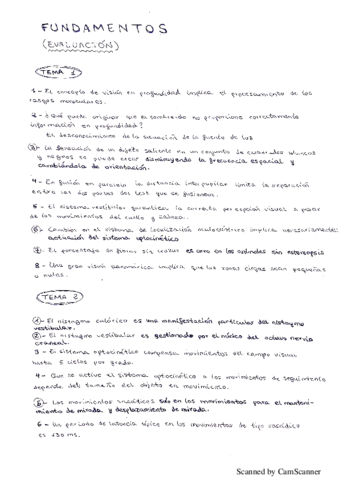 FUNDAMENTOS
(EVALUACIÓN)
TEMA 1
1- El concepto de visión en profundidad implica el procesamiento de los
rasgos monoculares.
2- ¿Qué puede originar que el sombreado no proporcione correctamente
información en profundidad?
El desconocimiento de la situación de la fuente de luz
3- La sensación de un objeto saliente en un conjunto de cuadrados blancos
y negros se puede crear disminuyendo la frecuencia espacial y
cambiándola de orientación.
4- En fusión en paralelo la distancia interpupilar limita la separación
entre los dos puntos que se fusionan.
5- El sistema vestibular garantiza la correcta percepción visual a pesar
de los movimientos del cuello y cabeza.
6- Cambios en el sistema de localización oculocéntrico implica necesariamente
activación del sistema optocinético
7- El porcentaje de fibras sin cruzar es cero en los animales sin estereopsis
8- Una gran visión panorámica implica que las zonas ciegas sean pequeñas
o nulas.
TEMA 2
1- El nistagmo calórico es una manifestación particular del nistagmo
vestibular.
2- El nistagmo vestibular es gestionado por el núcleo del octavo nervio
craneal.
3- El sistema optocinético compensa movimientos del campo visual
hasta 5 ciclos por grado.
4- Que se active el sistema optocinético o los movimientos de seguimiento
depende del tamaño del objeto en movimiento.
5- Los movimientos sacádicos son los movimientos para el manteni-
miento de mirada y desplazamiento de mirada.
6- Un periodo de latencia típico en los movimientos de tipo sacádico
es 150 ms.
Scanned by CamScanner